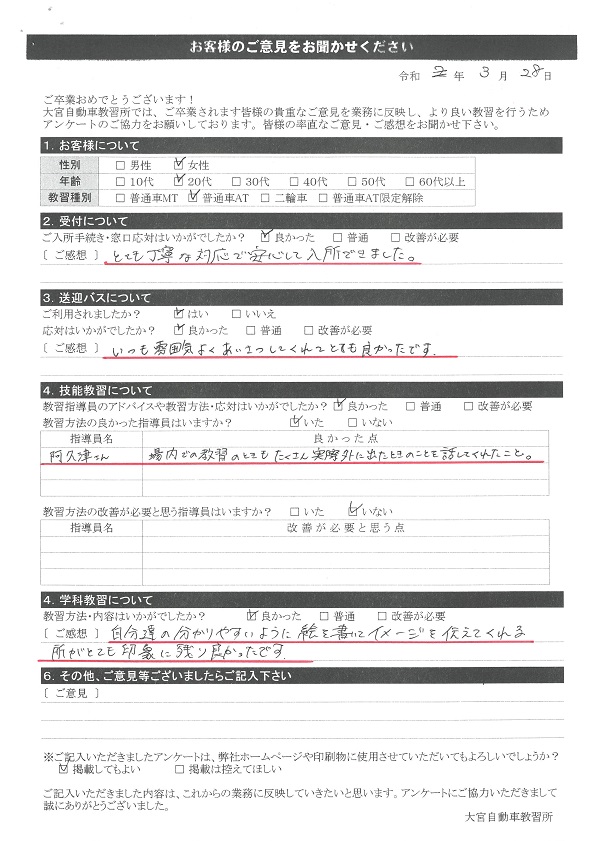 お客様のご意見をお聞かせください
令和 2 年 3 月 28 日
ご卒業おめでとうございます！
大宮自動車教習所では、ご卒業されます皆様の貴重なご意見を業務に反映し、より良い教習を行うため
アンケートのご協力をお願いしております。皆様の率直なご意見・ご感想をお聞かせ下さい。
1. お客様について
性別 □ 男性 ☑ 女性
年齢 □ 10代 ☑ 20代 □ 30代 □ 40代 □ 50代 □ 60代以上
教習種別 □ 普通車MT ☑ 普通車AT □ 二輪車 □ 普通車AT限定解除
2. 受付について
ご入所手続き・窓口応対はいかがでしたか？ ☑ 良かった □ 普通 □ 改善が必要
〔 ご感想 〕 とても丁寧な対応で安心して入所できました。
3. 送迎バスについて
ご利用されましたか？ ☑ はい □ いいえ
応対はいかがでしたか？ ☑ 良かった □ 普通 □ 改善が必要
〔 ご感想 〕 いつも雰囲気よくあいさつしてくれてとても良かったです。
4. 技能教習について
教習指導員のアドバイスや教習方法・応対はいかがでしたか？ ☑ 良かった □ 普通 □ 改善が必要
教習方法の良かった指導員はいますか？ ☑ いた □ いない
指導員名 良かった点
阿久津さん 場内での教習のときもたくさん実際外に出たときのことを話してくれたこと。
教習方法の改善が必要と思う指導員はいますか？ □ いた ☑ いない
指導員名 改善が必要と思う点
4. 学科教習について
教習方法・内容はいかがでしたか？ ☑ 良かった □ 普通 □ 改善が必要
〔 ご感想 〕 自分達の分かりやすいように絵を書いてイメージを伝えてくれる
所がとても印象に残り良かったです。
6. その他、ご意見等ございましたらご記入下さい
〔 ご意見 〕
※ご記入いただきましたアンケートは、弊社ホームページや印刷物に使用させていただいてもよろしいでしょうか？
☑ 掲載してもよい □ 掲載は控えてほしい
ご記入いただきました内容は、これからの業務に反映していきたいと思います。アンケートにご協力いただきまして
誠にありがとうございました。
大宮自動車教習所